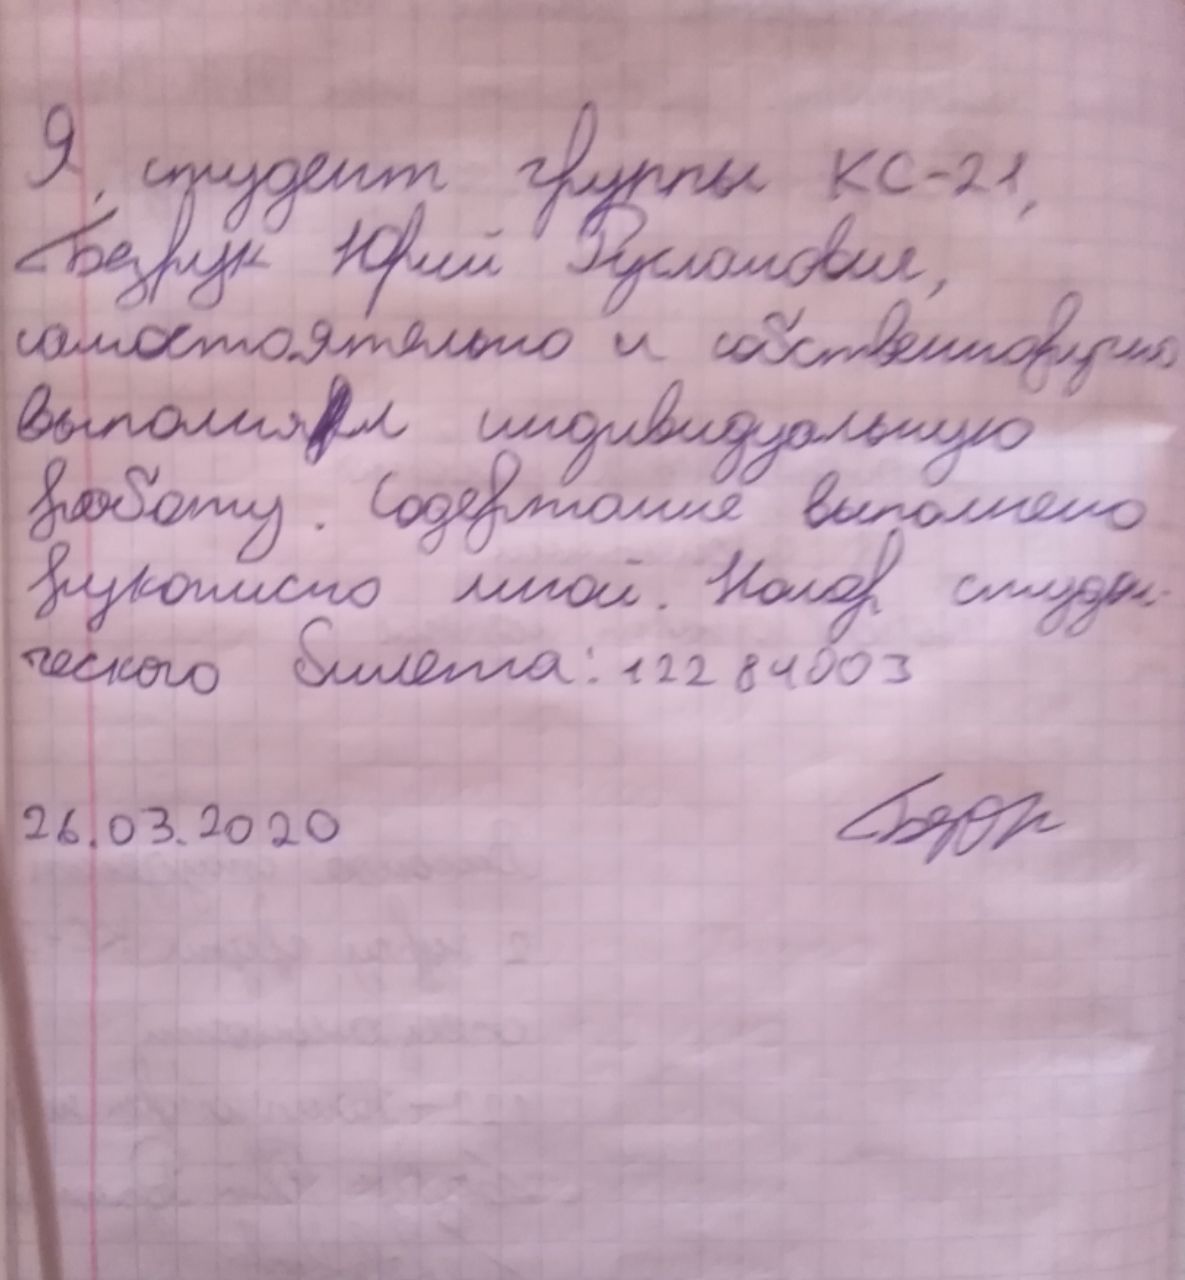 Я, студент группы КС-21,
Безрук Юрий Русланович,
самостоятельно и собственноручно
выполнял индивидуальную
работу. Содержание выполнено
рукописно мной. Номер студен-
ческого билета: 12284003
26.03.2020